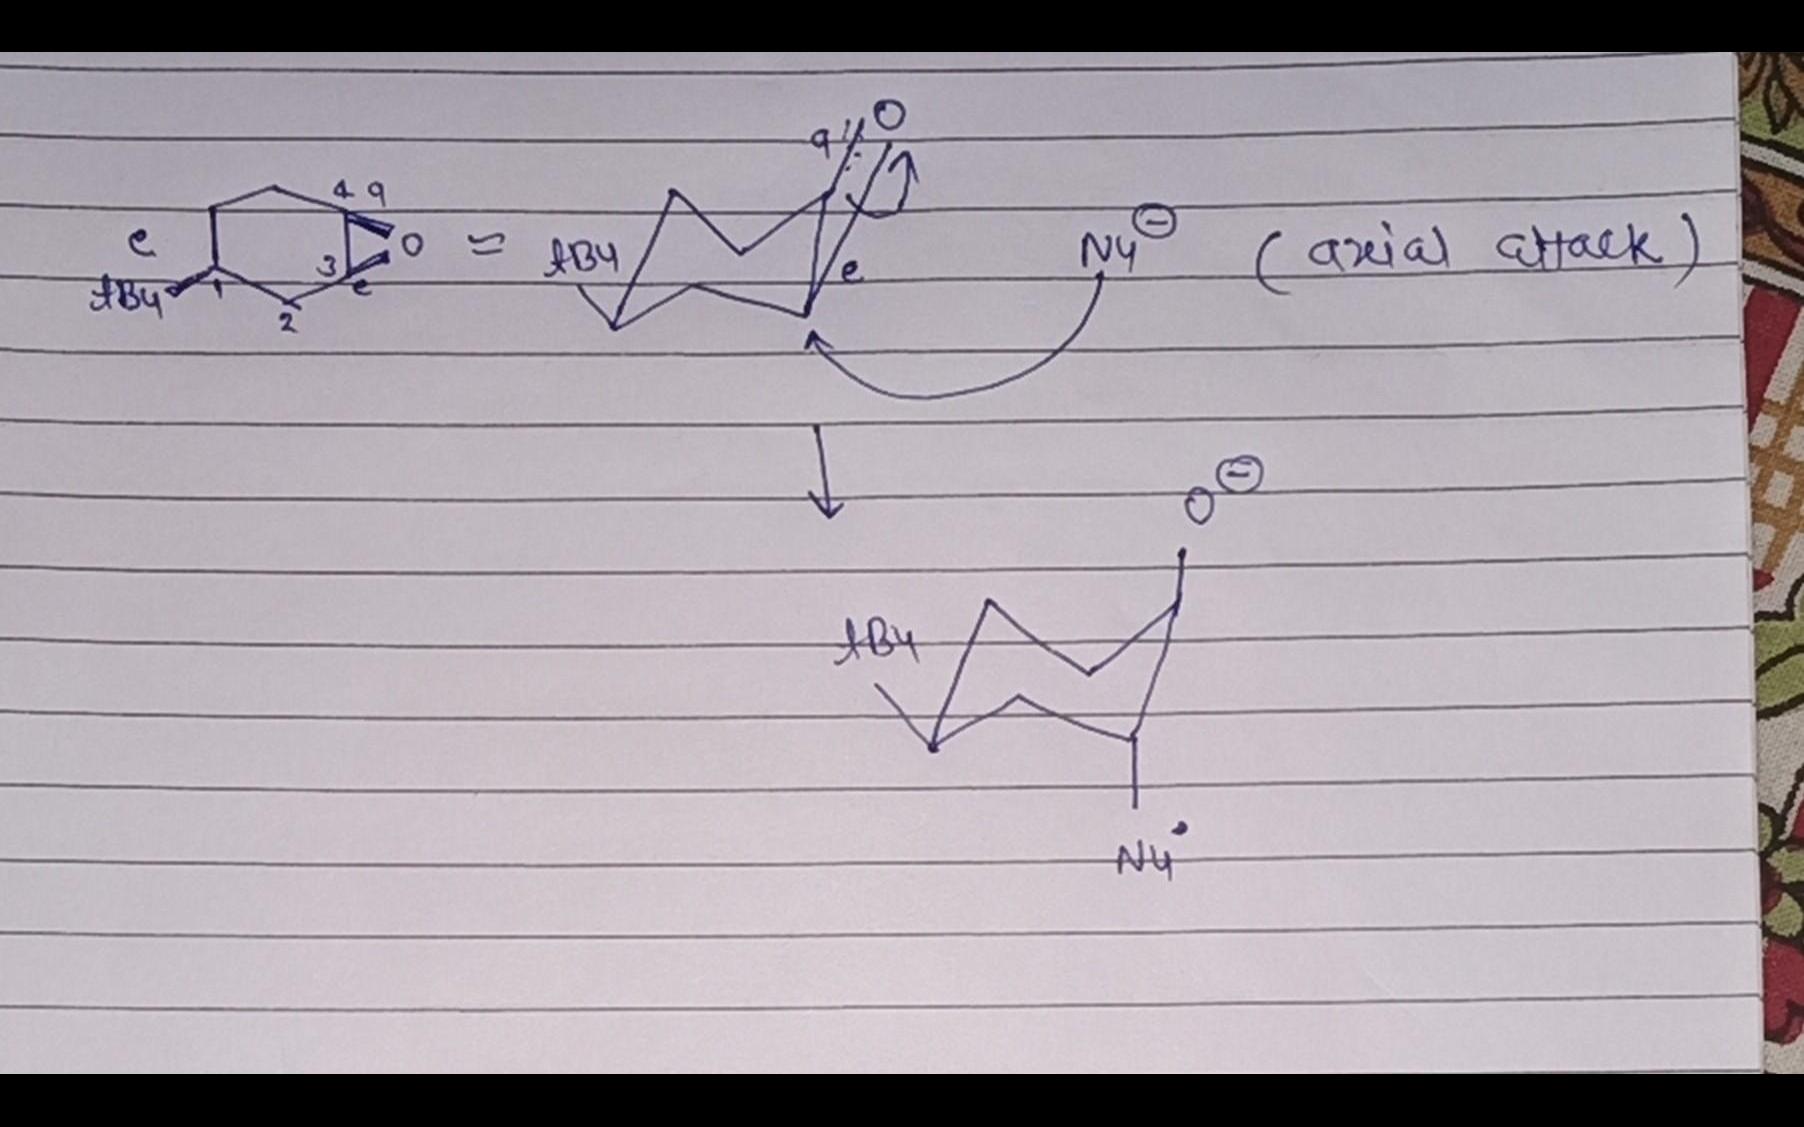 a O
4 a
e O = tBu e Nu⊖ (axial attack)
3
tBu 1 e
2
O⊖
tBu
Nu